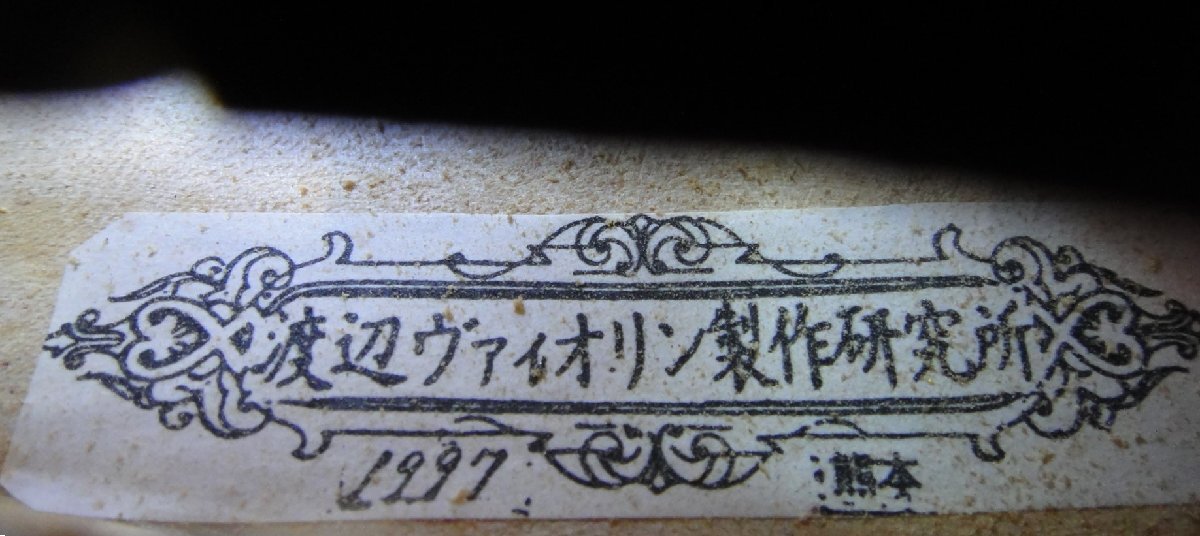 渡辺ヴァイオリン製作研究所
1997 熊本